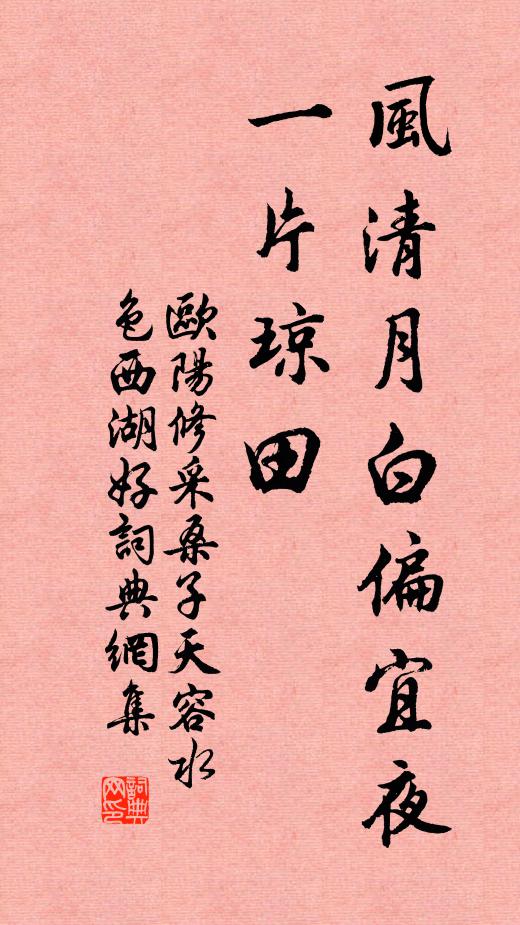 風清月白偏宜夜
一片琼田
歐陽修采桑子天容水
色西湖好詞典網集
詞典
网印